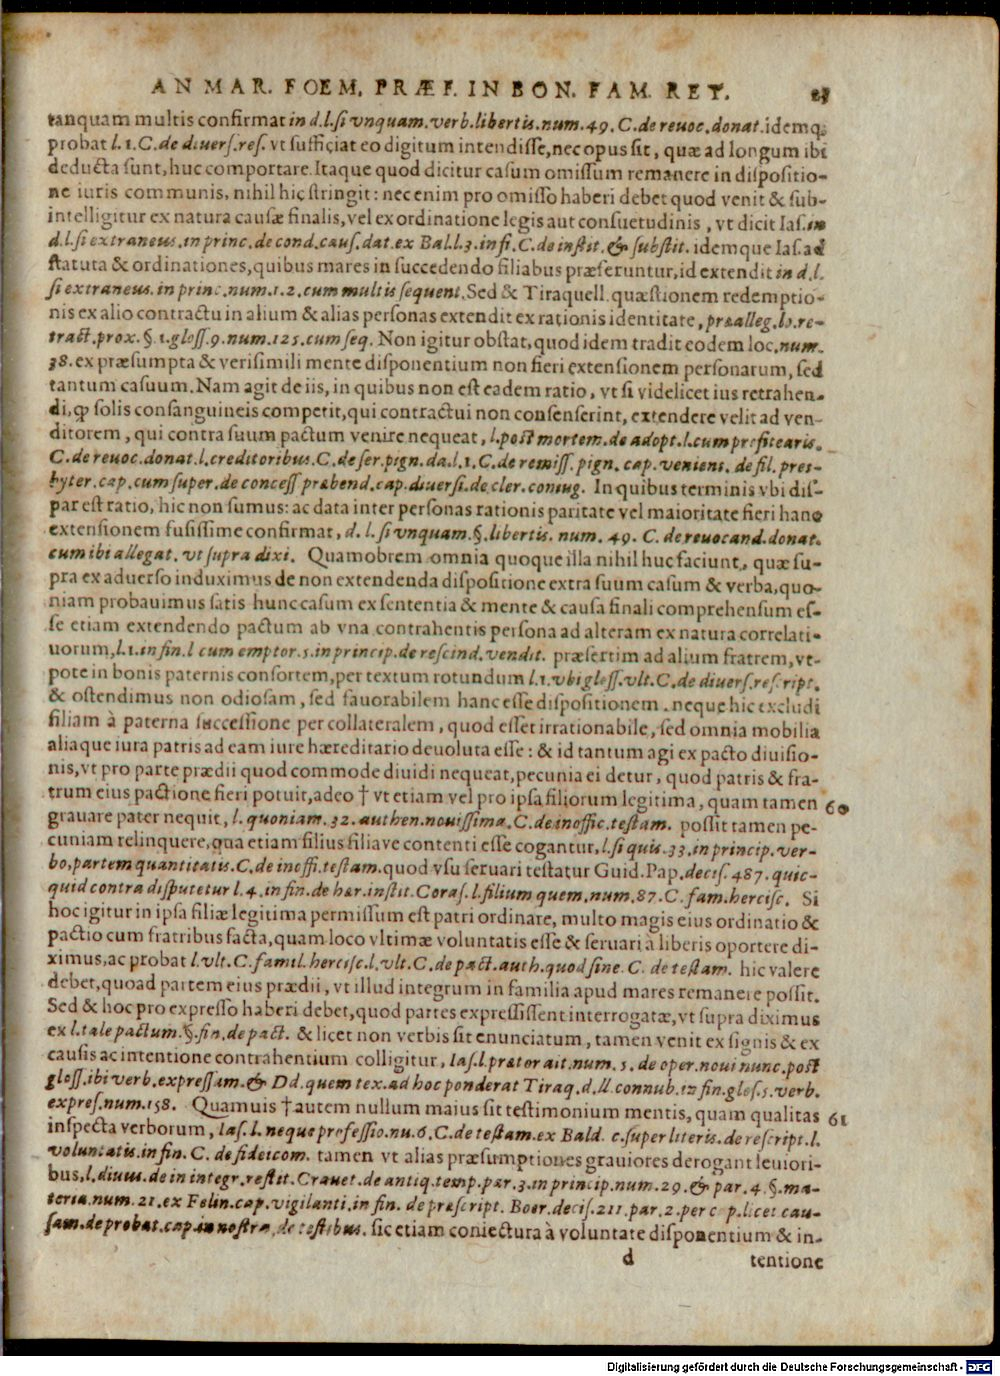 AN MAR. FOEM. PRÆF. IN BON. FAM. RET. 25
tanquam multis confirmat in d.l.si vnquam.verb.libertis.num.49. C.de reuoc.donat. idemq;
probat l.1.C.de diuers.res. vt sufficiat eo digitum intendisse, nec opus sit, quæ ad longum ibi
deducta sunt, huc comportare. Itaque quod dicitur casum omissum remanere in dispositio-
ne iuris communis, nihil hic stringit: nec enim pro omisso haberi debet quod venit & sub-
intelligitur ex natura causæ finalis, vel ex ordinatione legis aut consuetudinis, vt dicit Ias. in
d.l.si extraneus.in princ.de cond.caus.dat.ex Bal.l.3.in fi.C.de instit.& substit. idemque Ias. ad
statuta & ordinationes, quibus mares in succedendo filiabus præferuntur, id extendit in d.l.
si extraneus.in princ.num.12.cum multis sequent. Sed & Tiraquell. quæstionem redemptio-
nis ex alio contractu in alium & alias personas extendit ex rationis identitate, præalleg.lo.re-
tract.prox.§.1.gloss.9.num.125.cum seq. Non igitur obstat, quod idem tradit eodem loc.num.
38. ex præsumpta & verisimili mente disponentium non fieri extensionem personarum, sed
tantum casuum. Nam agit de iis, in quibus non est eadem ratio, vt si videlicet ius retrahen-
di, ꝙ solis consanguineis competit, qui contractui non consenserint, extendere velit ad ven-
ditorem, qui contra suum pactum venire nequeat, l.post mortem.de adopt.l.cum profitearis.
C.de reuoc.donat.l.creditoribus.C.de ser.pign.da.l.1.C.de remiss.pign. cap.veniens. de fil.pres-
byter.cap.cum super.de concess præbend.cap.diuersi.de cler.coniug. In quibus terminis vbi dis-
par est ratio, hic non sumus: ac data inter personas rationis paritate vel maioritate fieri hanc
extensionem fusissime confirmat, d. l. si vnquam.§.libertis. num. 49. C. de reuocand.donat.
cum ibi allegat. vt supra dixi. Quamobrem omnia quoque illa nihil huc faciunt, quæ su-
pra ex aduerso induximus de non extendenda dispositione extra suum casum & verba, quo-
niam probauimus satis hunc casum ex sententia & mente & causa finali comprehensum es-
se etiam extendendo pactum ab vna contrahentis persona ad alteram ex natura correlati-
uorum, l.1.in fin.l cum emptor.5.in princip.de rescind.vendit. præsertim ad alium fratrem, vt-
pote in bonis paternis consortem, per textum rotundum l.1.vbi gloss.vlt.C.de diuers.rescript.
& ostendimus non odiosam, sed fauorabilem hanc esse dispositionem. neque hic excludi
filiam à paterna successione per collateralem, quod esset irrationabile, sed omnia mobilia
aliaque iura patris ad eam iure hæreditario deuoluta esse: & id tantum agi ex pacto diuisio-
nis, vt pro parte prædii quod commode diuidi nequeat, pecunia ei detur, quod patris & fra-
trum eius pactione fieri potuit, adeo † vt etiam vel pro ipsa filiorum legitima, quam tamen 60
grauare pater nequit, l. quoniam.32.authen.nouissima.C.de inoffic.testam. possit tamen pe-
cuniam relinquere, qua etiam filius filiave contenti esse cogantur, l.si quis.33.in princip.ver-
bo,partem quantitatis.C.de inoffi.testam. quod vsu seruari testatur Guid. Pap. decis.487.quic-
quid contra disputetur l.4.in fin.de hær.instit.Coras.l.filium quem.num.87.C.fam.hercisc. Si
hoc igitur in ipsa filiæ legitima permissum est patri ordinare, multo magis eius ordinatio &
pactio cum fratribus facta, quam loco vltimæ voluntatis esse & seruari à liberis oportere di-
ximus, ac probat l.vlt.C.famil.hercisc.l.vlt.C.de pact.auth.quod sine. C. de testam. hic valere
debet, quoad partem eius prædii, vt illud integrum in familia apud mares remanere possit.
Sed & hoc pro expresso haberi debet, quod partes expressissent interrogatæ, vt supra diximus
ex l.tale pactum.§.fin.de pact. & licet non verbis sit enunciatum, tamen venit ex signis & ex
causis ac intentione contrahentium colligitur, Ias.l.prætor ait.num.5. de oper.noui nunc.post
gloss.ibi verb.expressam.& Dd.quem tex.ad hoc ponderat Tiraq.d.ll.connub.in fin.glos.5.verb.
expres.num.158. Quamuis † autem nullum maius sit testimonium mentis, quam qualitas 61
inspecta verborum, Ias.l. neque professio.nu.6.C.de testam.ex Bald. c.super literis.de rescript.l.
voluntatis.in fin. C. de fideicom. tamen vt alias præsumptiones grauiores derogant leuiori-
bus, l.diuus.de in integr.restit.Crauet.de antiq.temp.par.3.in princip.num.29.& par.4.§.ma-
teria.num.21.ex Felin.cap.vigilanti.in fin. de præscript. Boer.decis.211.par.2.per c p.licet cau-
sam.de probat.cap.in nostra, de testibus. sic etiam coniectura à voluntate disponentium & in-
d tentione
Digitalisierung gefördert durch die Deutsche Forschungsgemeinschaft - DFG